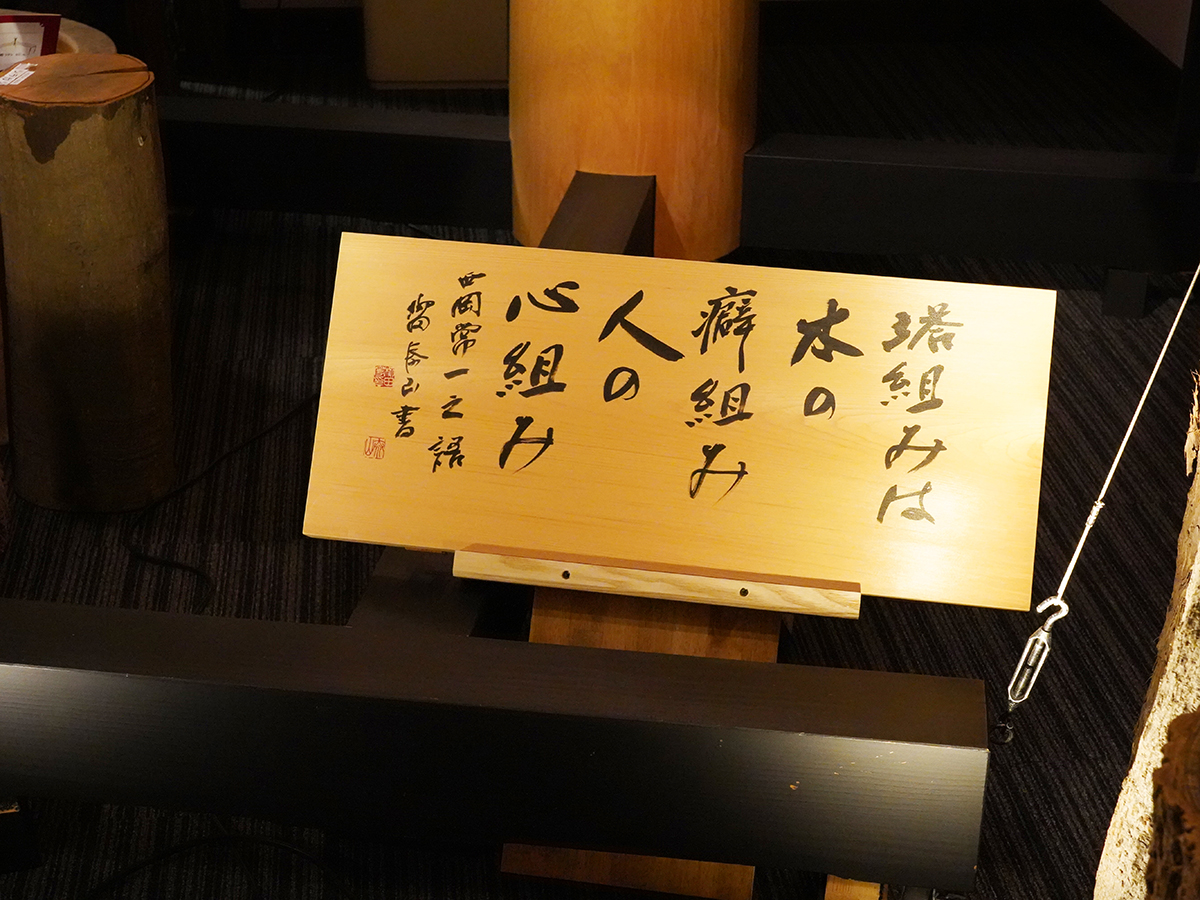 塔組みは
木の
癖組み
人の
心組み
西岡常一之語
泰山書